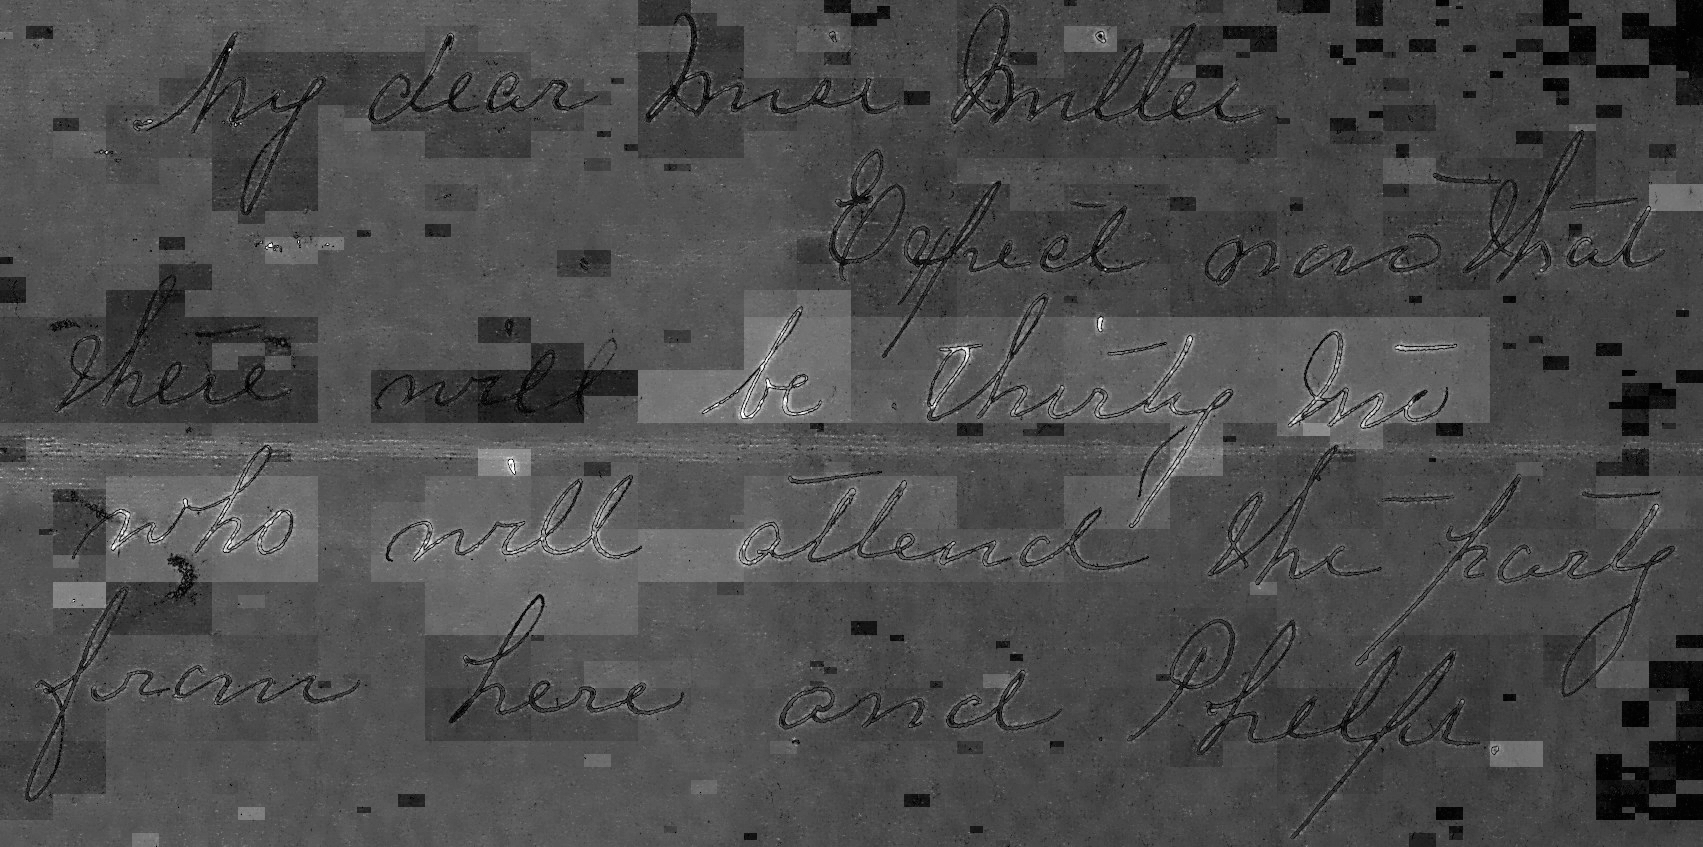 My dear Miss Miller
Expect now that
there will be thirty two
who will attend the party
from here and Phelps